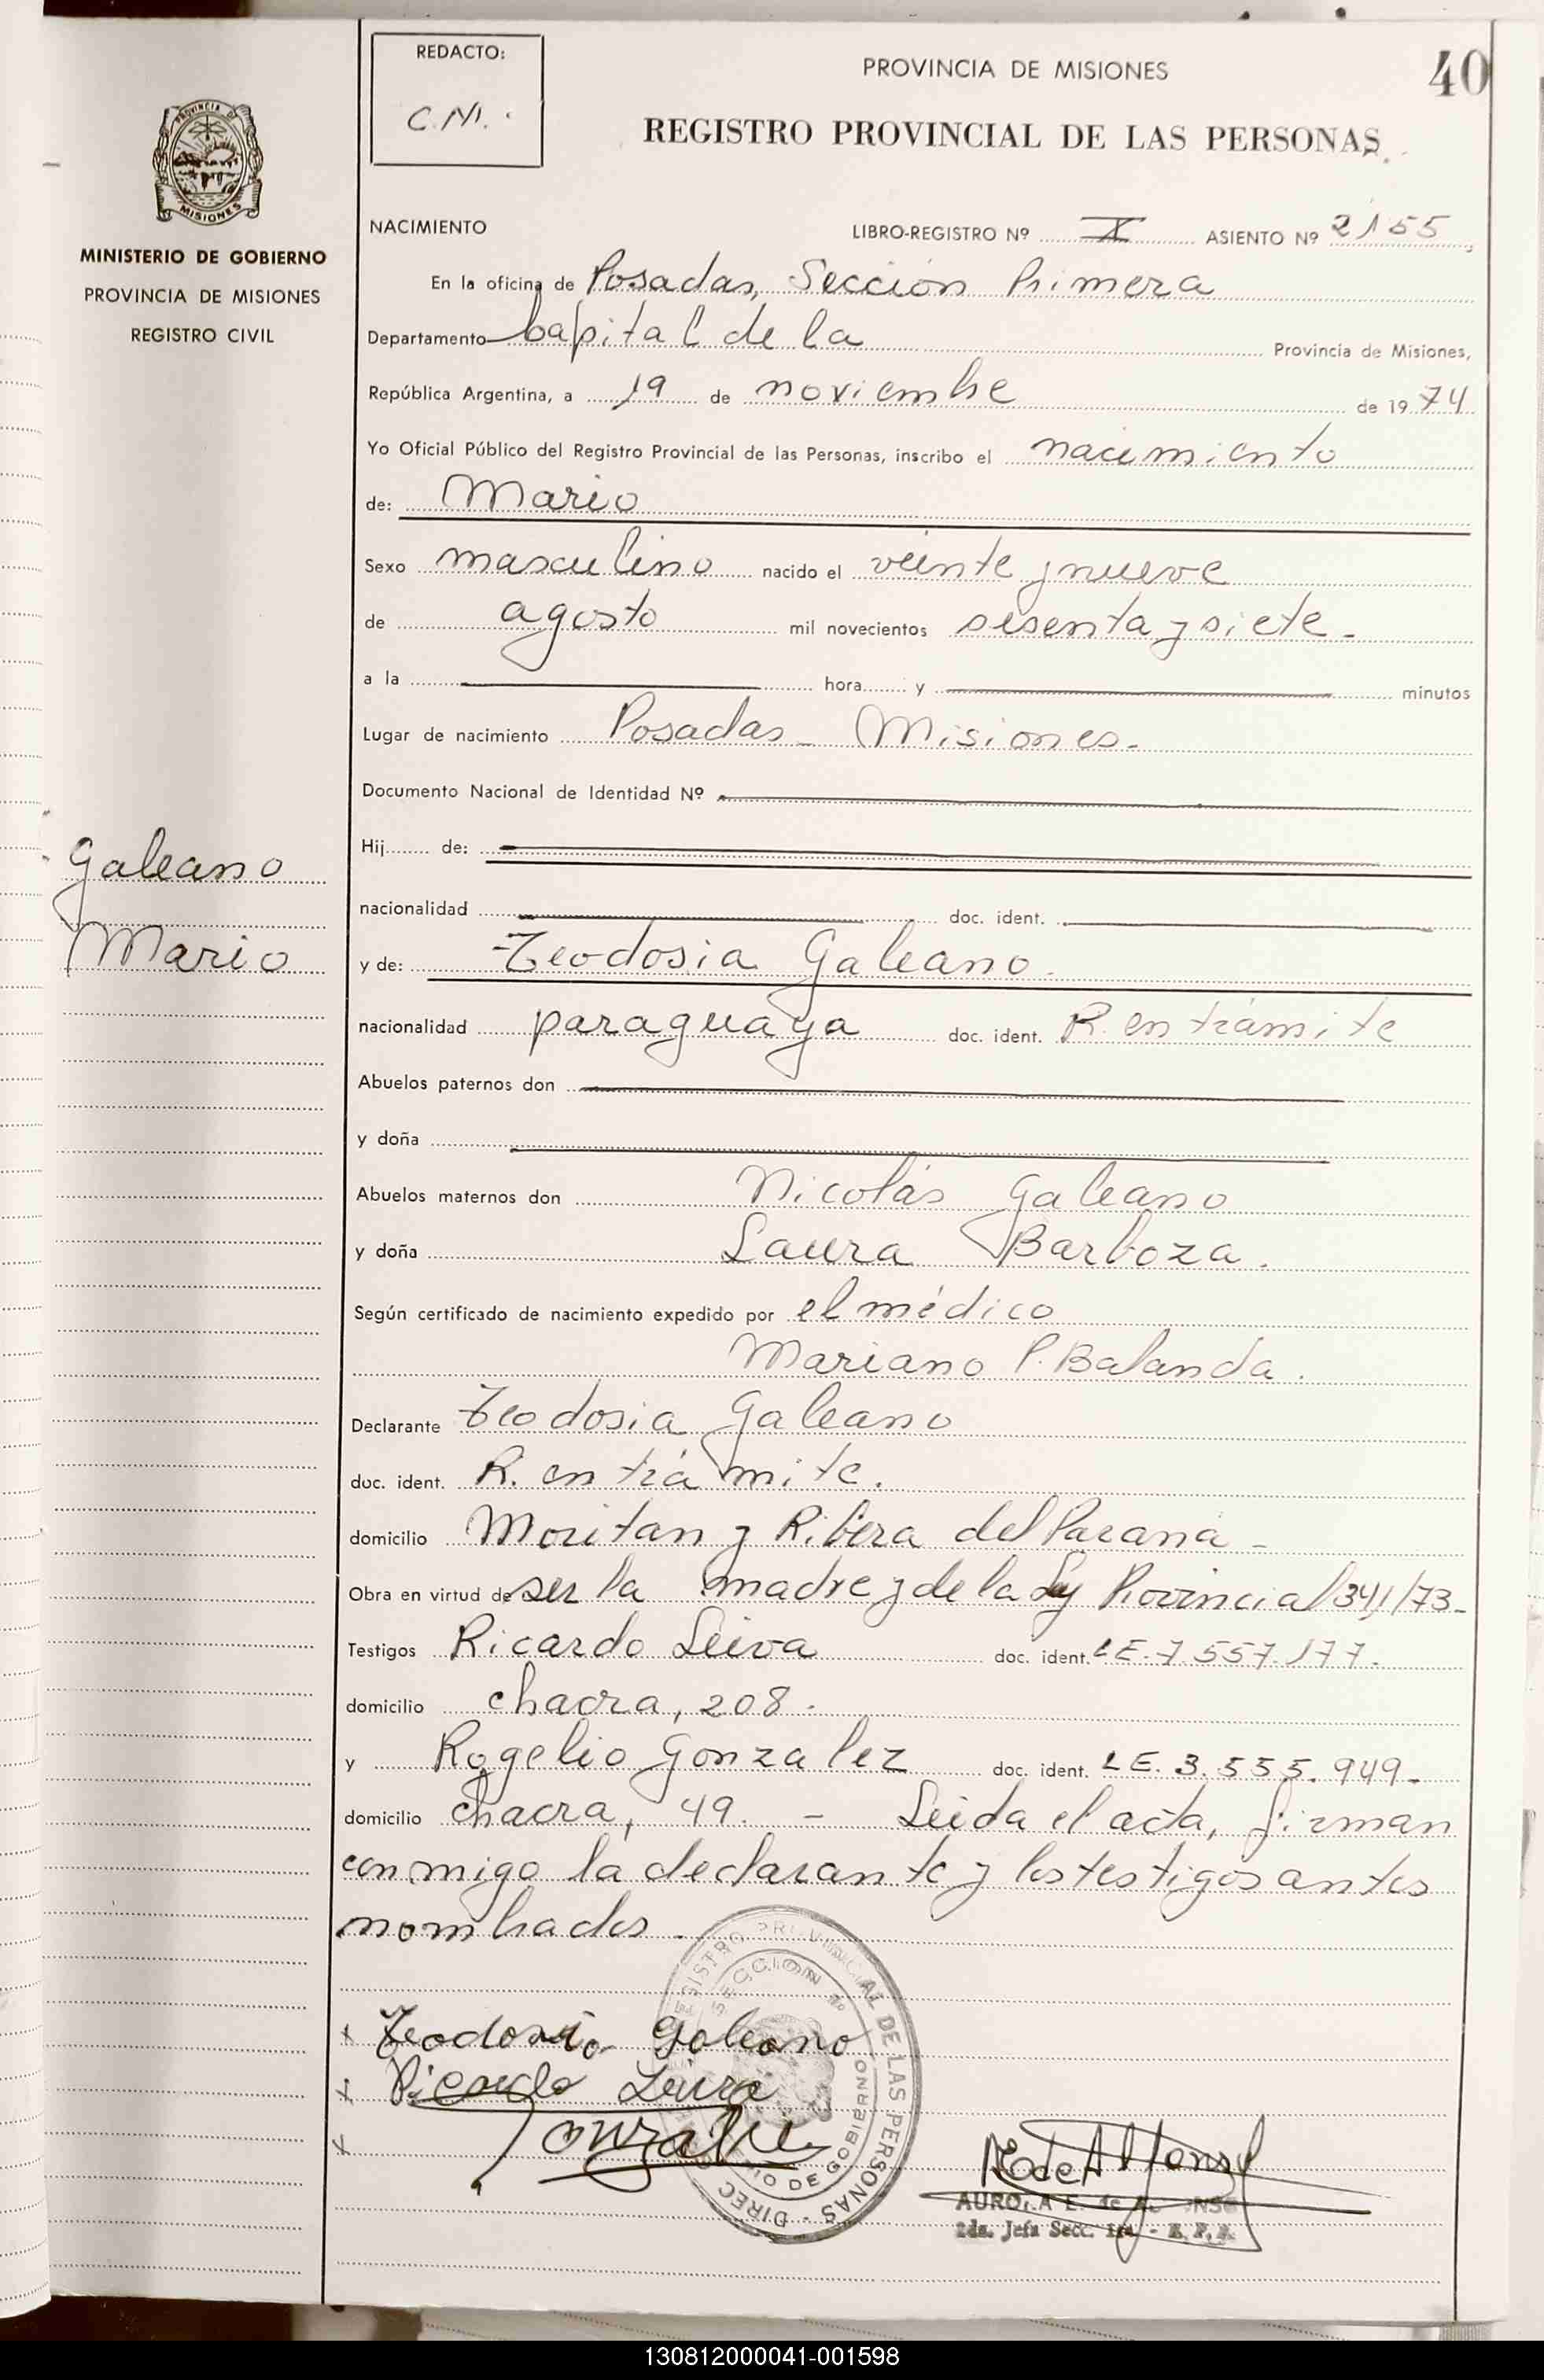 REDACTO:
C.M.
PROVINCIA DE MISIONES
40
REGISTRO PROVINCIAL DE LAS PERSONAS
PROVINCIA DE
MISIONES
MINISTERIO DE GOBIERNO
PROVINCIA DE MISIONES
REGISTRO CIVIL
NACIMIENTO LIBRO-REGISTRO Nº X ASIENTO Nº 2155
En la oficina de Posadas, Sección Primera
Departamento Capital de la Provincia de Misiones,
República Argentina, a 19 de noviembre de 1974
Yo Oficial Público del Registro Provincial de las Personas, inscribo el nacimiento
de: Mario
Sexo masculino nacido el veinte y nueve
de agosto mil novecientos sesenta y siete.
a la hora y minutos
Lugar de nacimiento Posadas - Misiones.
Documento Nacional de Identidad Nº
Hij de:
Galeano
Mario
nacionalidad doc. ident.
y de: Teodosia Galeano.
nacionalidad paraguaya doc. ident. R. en trámite
Abuelos paternos don
y doña
Abuelos maternos don Nicolás Galeano
y doña Laura Barboza.
Según certificado de nacimiento expedido por el médico
Mariano P. Balanda.
Declarante Teodosia Galeano
doc. ident. R. en trámite.
domicilio y Ribera del Paraná -
Obra en virtud de ser la madre y de la Ley Provincial 341/73-
Testigos Ricardo Leiva doc. ident. LE. 7.557.177.
domicilio chacra, 208.
y Rogelio Gonzalez doc. ident. LE. 3.555.949.
domicilio chacra, 49. - Leida el acta, firman
conmigo la declarante y los testigos antes
nombrados.
x Teodosia Galeano
x Ricardo Leiva
x Gonzalez
REGISTRO PROVINCIAL DE LAS PERSONAS
SECCION 1ª
DE GOBIERNO
AURORA E. de
2da. Jefa Secc. 1ra. - R. P. P.
130812000041-001598